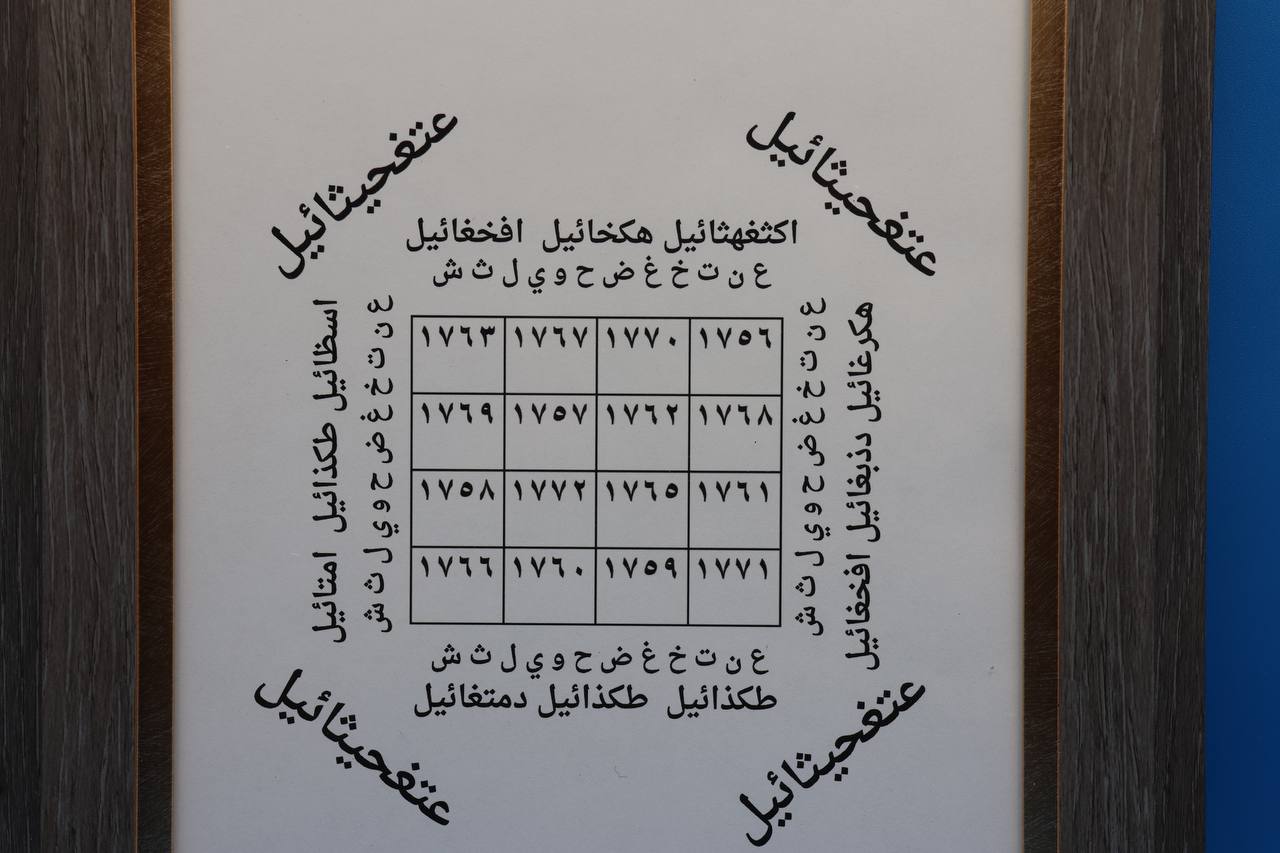 عتفحيثائيل
عتفحيثائيل
اكثغهثائيل هكخائيل افخغائيل
ع ن ت خ غ ض ح و ي ل ث ش
اسظائيل طكذائيل امتائيل
ع ن ت خ غ ض ح و ي ل ث ش
١٧٦٣ ١٧٦٧ ١٧٧٠ ١٧٥٦
١٧٦٩ ١٧٥٧ ١٧٦٢ ١٧٦٨
١٧٥٨ ١٧٧٢ ١٧٦٥ ١٧٦١
١٧٦٦ ١٧٦٠ ١٧٥٩ ١٧٧١
ع ن ت خ غ ض ح و ي ل ث ش
هكرغائيل دذبغائيل افخغائيل
ع ن ت خ غ ض ح و ي ل ث ش
طكذائيل طكذائيل دمتغائيل
عتفحيثائيل
عتفحيثائيل